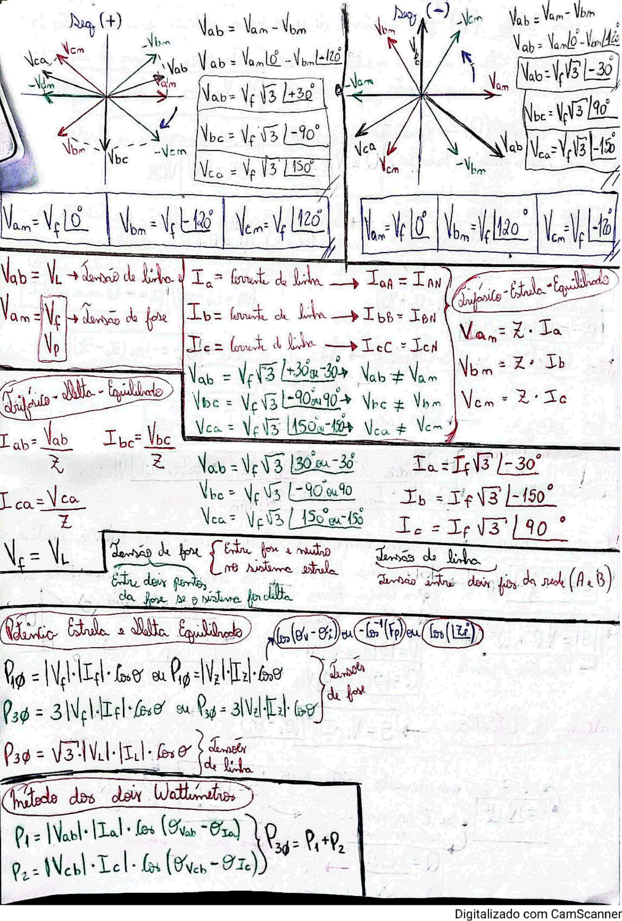 Seq (+)
Vcm
-Vbm
Vca
Vab
-Vam
Vam
Vbm
Vbc
-Vcm
Vab = Vam - Vbm
Vab = Vam∠0° - Vbm∠-120°
Vab = Vf √3 ∠+30°
Vbc = Vf √3 ∠-90°
Vca = Vf √3 ∠150°
Vam = Vf ∠0°
Vbm = Vf ∠-120°
Vcm = Vf ∠120°
Seq (-)
Vbm
Vbc
-Vcm
-Vam
Vam
Vca
Vcm
-Vbm
Vab
Vab = Vam - Vbm
Vab = Vam∠0° - Vbm∠120°
Vab = Vf √3 ∠-30°
Vbc = Vf √3 ∠90°
Vca = Vf √3 ∠-150°
Vam = Vf ∠0°
Vbm = Vf ∠120°
Vcm = Vf ∠-120°
Vab = VL → Tensão de linha
Vam = Vf → Tensão de fase
Vp
Ia = Corrente de linha → IaA = IAN
Ib = Corrente de linha → IbB = IBN
Ic = Corrente de linha → IcC = IcN
Vab = Vf √3 ∠+30° ou -30° → Vab ≠ Vam
Vbc = Vf √3 ∠-90° ou 90° → Vbc ≠ Vbm
Vca = Vf √3 ∠150° ou -150° → Vca ≠ Vcm
Trifásico-Estrela-Equilibrado
Vam = Z · Ia
Vbm = Z · Ib
Vcm = Z · Ic
Trifásico-Delta-Equilibrado
Iab = Vab/Z Ibc = Vbc/Z
Ica = Vca/Z
Vf = VL
Vab = Vf √3 ∠30° ou -30°
Vbc = Vf √3 ∠-90° ou 90
Vca = Vf √3 ∠150° ou -150°
Ia = If √3 ∠-30°
Ib = If √3 ∠-150°
Ic = If √3 ∠90°
Tensão de fase { Entre fase e neutro
no sistema estrela
Entre dois pontos
da fase se o sistema for delta
Tensão de linha
Tensão entre dois fios da rede (A e B)
Potência Estrela e Delta Equilibrado
Cos(θv - θi) ou -Cos⁻¹(Fp) ou Cos(∠Z°)
P1ø = |Vf|·|If|· Cosθ ou P1ø = |Vz|·|Iz|· Cosθ
P3ø = 3|Vf|·|If|· Cosθ ou P3ø = 3|Vz|·|Iz|· Cosθ
} Tensões
de fase
P3ø = √3·|VL|·|IL|· Cosθ } Tensões
de linha
Método dos dois Wattímetros
P1 = |Vab|·|Ia|· Cos (θVab - θIa)
P2 = |Vcb|· Ic|· Cos (θVcb - θIc)
} P3ø = P1 + P2
Digitalizado com CamScanner